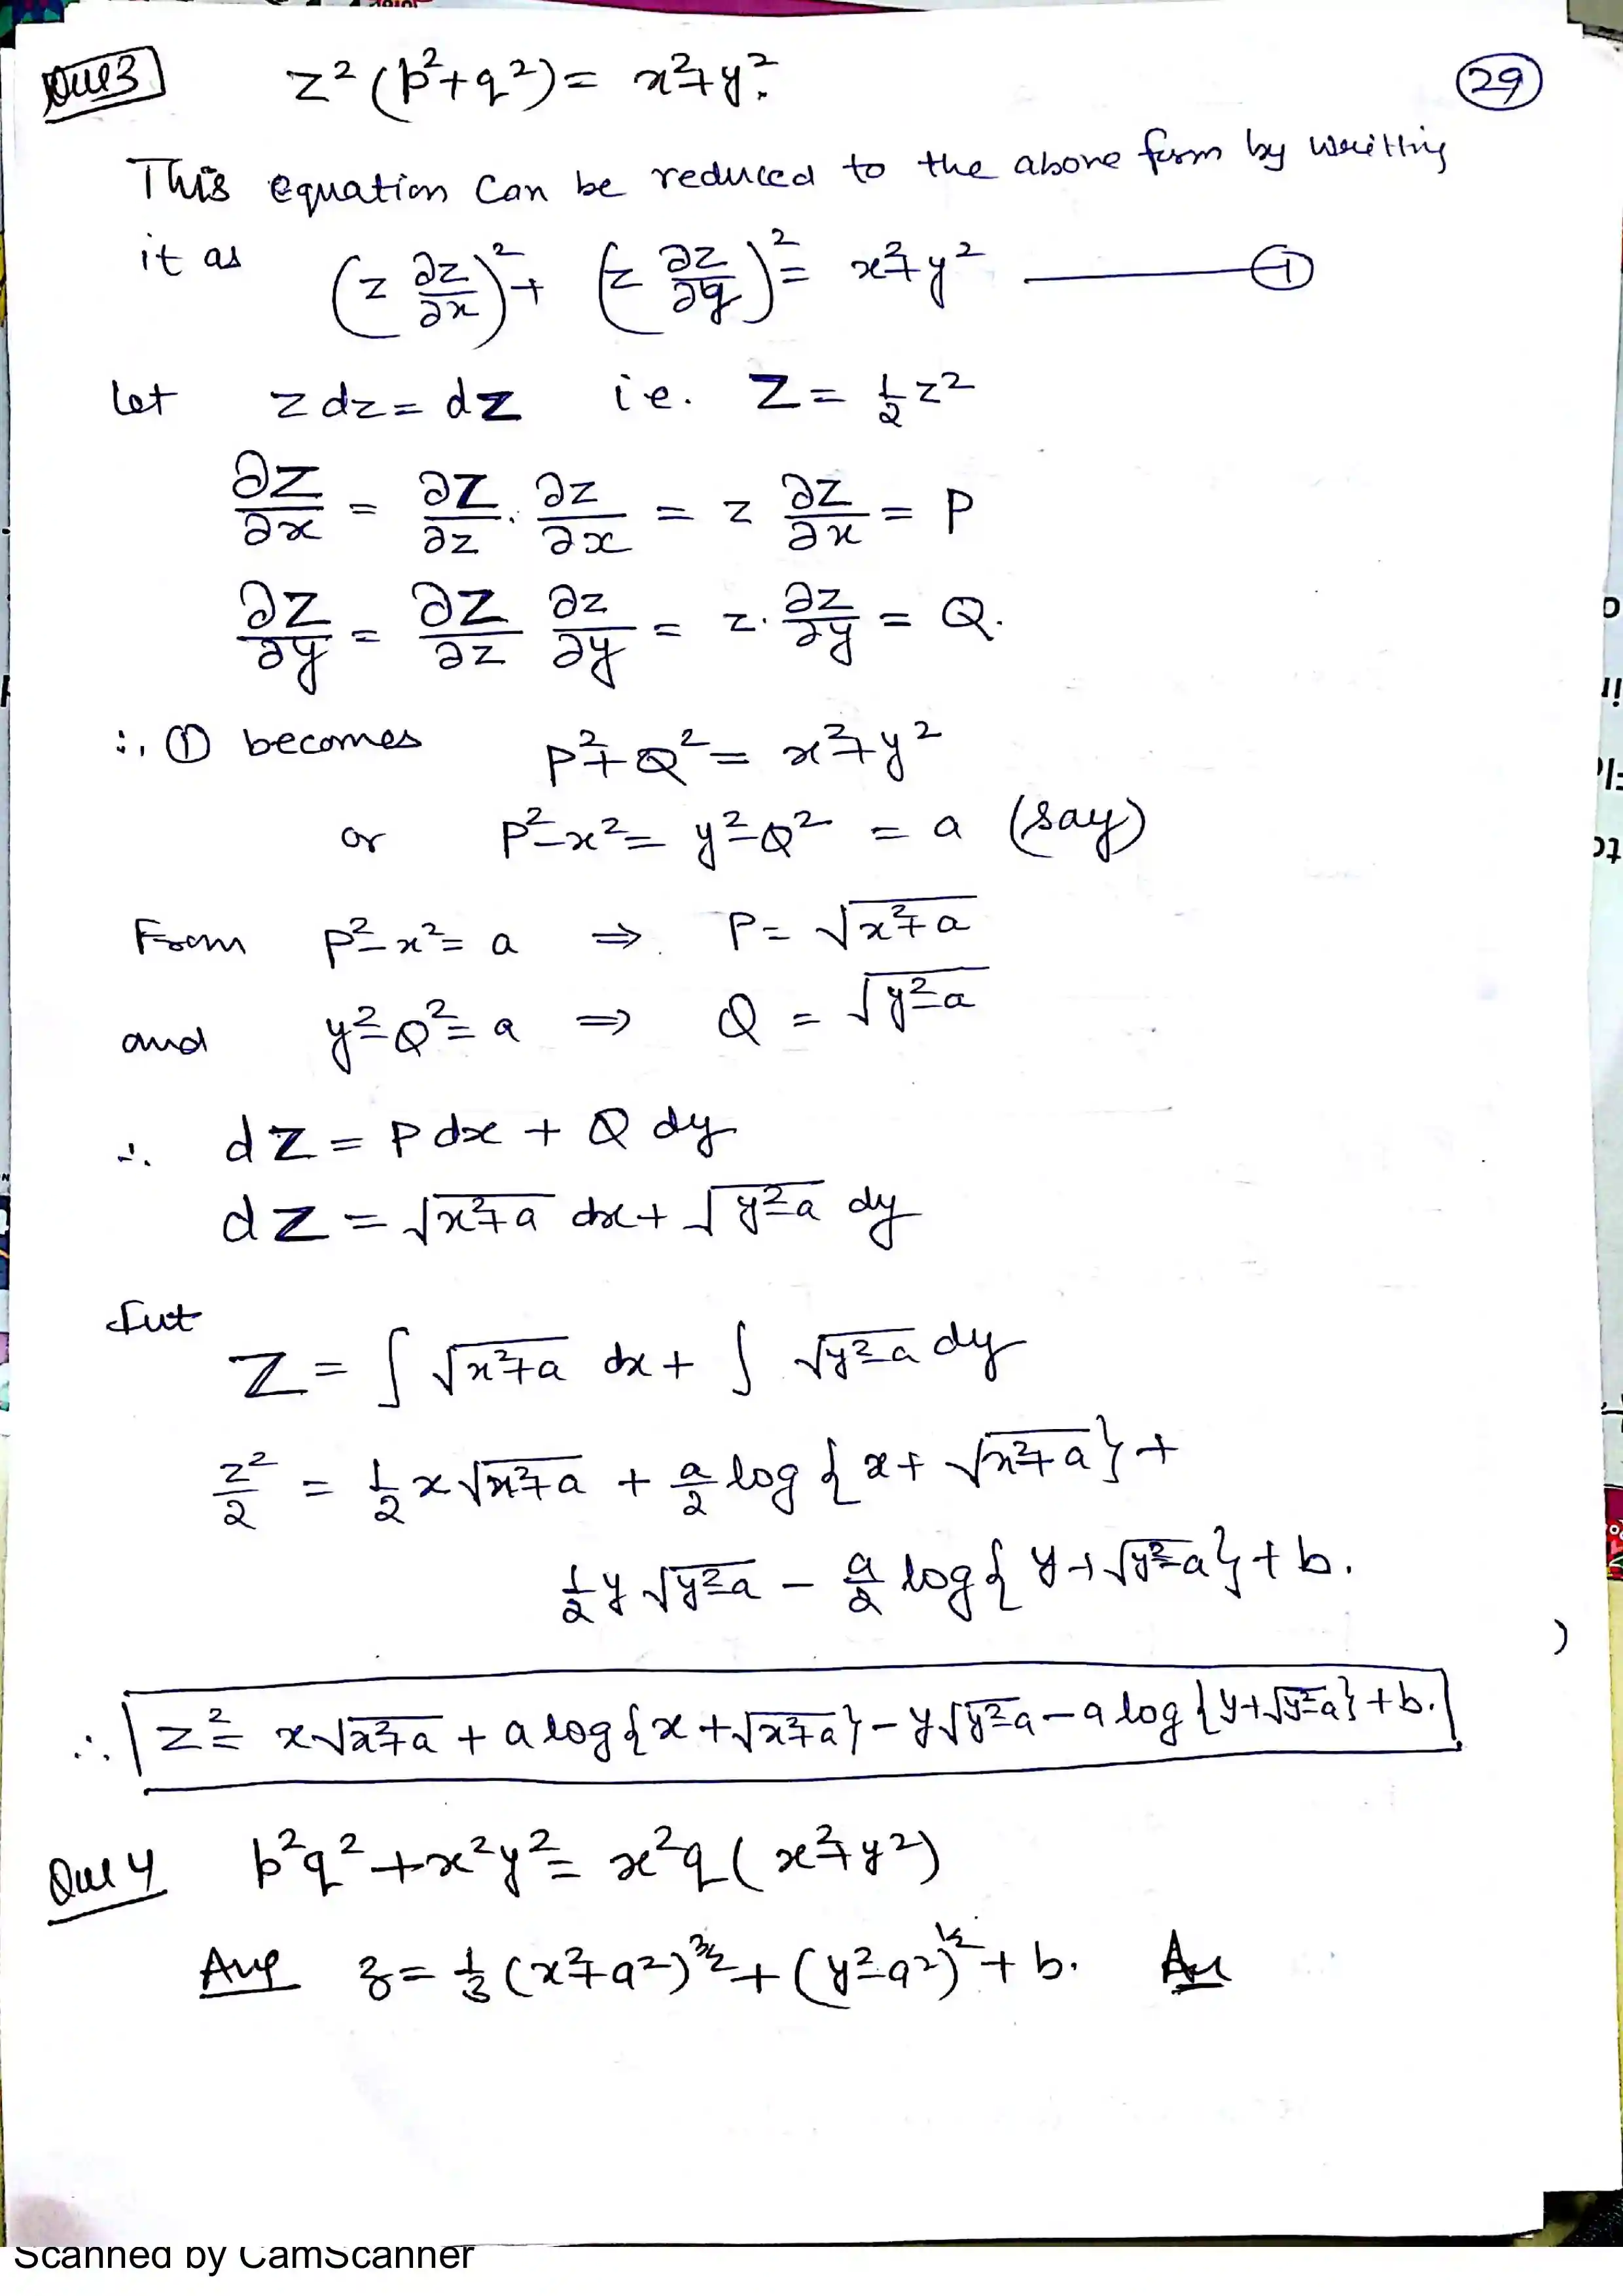 Que 3 z² (p²+q²) = x²+y². 29
This equation can be reduced to the above form by writting
it as (z ∂z/∂x)² + (z ∂z/∂y)² = x²+y² ——— ①
let z dz = dZ i.e. Z = ½ z²
∂Z/∂x = ∂Z/∂z · ∂z/∂x = z ∂z/∂x = P
∂Z/∂y = ∂Z/∂z ∂z/∂y = z · ∂z/∂y = Q.
∴ ① becomes P²+Q² = x²+y²
or P²-x² = y²-Q² = a (say)
From P²-x² = a ⇒ P = √(x²+a)
and y²-Q² = a ⇒ Q = √(y²-a)
∴ dZ = P dx + Q dy
dZ = √(x²+a) dx + √(y²-a) dy
Int
Z = ∫ √(x²+a) dx + ∫ √(y²-a) dy
z²/2 = ½ x √(x²+a) + a/2 log { x + √(x²+a) } +
½ y √(y²-a) - a/2 log { y + √(y²-a) } + b.
∴ z² = x√(x²+a) + a log{x + √(x²+a)} - y√(y²-a) - a log{y+√(y²-a)} + b.
Que 4 p²q² + x²y² = x²q (x²+y²)
Ans z = ⅓ (x²+a²)^3/2 + (y²-a²)^1/2 + b. An
Scanned by CamScanner